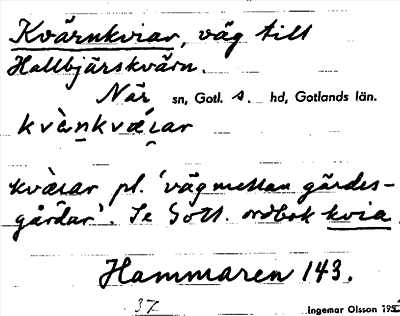 Kvärnkviar, väg till
Hallbjärskvärn.
När sn, Gotl. s. hd, Gotlands län.
kvàn̠kvæ̀ɪar
kvæ̀ɪar pl. 'väg mellan gärdes-
gårdar'. Se Gotl. ordbok kvia
Hammaren 143.
37
Ingemar Olsson 195